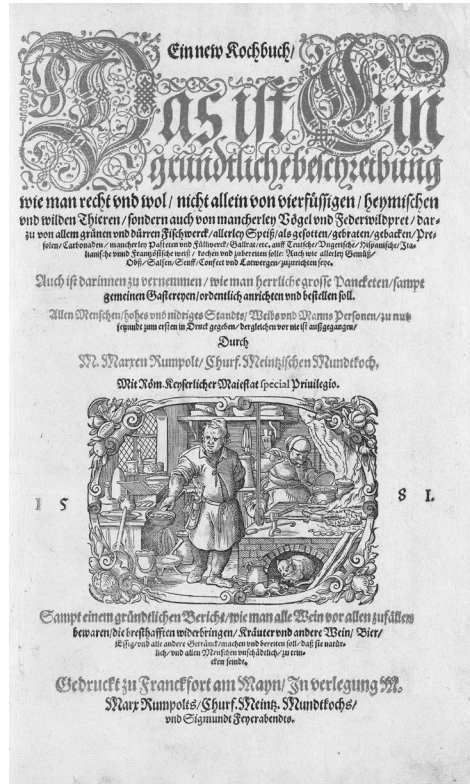 Ein new Kochbuch/
Das ist Ein
gründtliche beschreibung
wie man recht vnd wol / nicht allein von vierfüssigen / heymischen
vnd wilden Thieren / sondern auch von mancherley Vögel vnd Federwildpret / dar-
zu von allem grünen vnd dürren Fischwerck / allerley Speiß / als gesotten / gebraten / gebacken / Pre-
solen / Carbonaden / mancherley Pasteten vnd Füllwerck / Gallrat / etc. auff Teutsche / Vngerische / Hispanische / Ita-
lianische vnnd Frantzösische weiß / kochen vnd zubereiten solle: Auch wie allerley Gemüß /
Obß / Salsen / Senff / Confect vnd Latwergen / zuzurichten seye.
Auch ist darinnen zu vernemmen / wie man herrliche grosse Pancketen / sampt
gemeinen Gastereyen / ordentlich anrichten vnd bestellen soll.
Allen Menschen / hohes vnd nidriges Standts / Weibs vnd Manns Personen / zu nutz
jetzundt zum ersten in Druck gegeben / dergleichen vor nie ist außgegangen /
Durch
M. Marxen Rumpolt / Churf. Meintzischen Mundtkoch.
Mit Röm. Keyserlicher Maiestat special Priuilegio.
1 5 8 1.
Sampt einem gründtlichen Bericht / wie man alle Wein vor allen zufällen
bewaren / die bresthafften widerbringen / Kräuter vnd andere Wein / Bier /
Essig / vnd alle andere Getränck / machen vnd bereiten soll / daß sie natür-
lich / vnd allen Menschen vnschädtlich / zu trin-
cken seindt.
Gedruckt zu Franckfort am Mayn / In verlegung M.
Marx Rumpolts / Churf. Meintz. Mundtkochs /
vnd Sigmundt Feyerabendts.